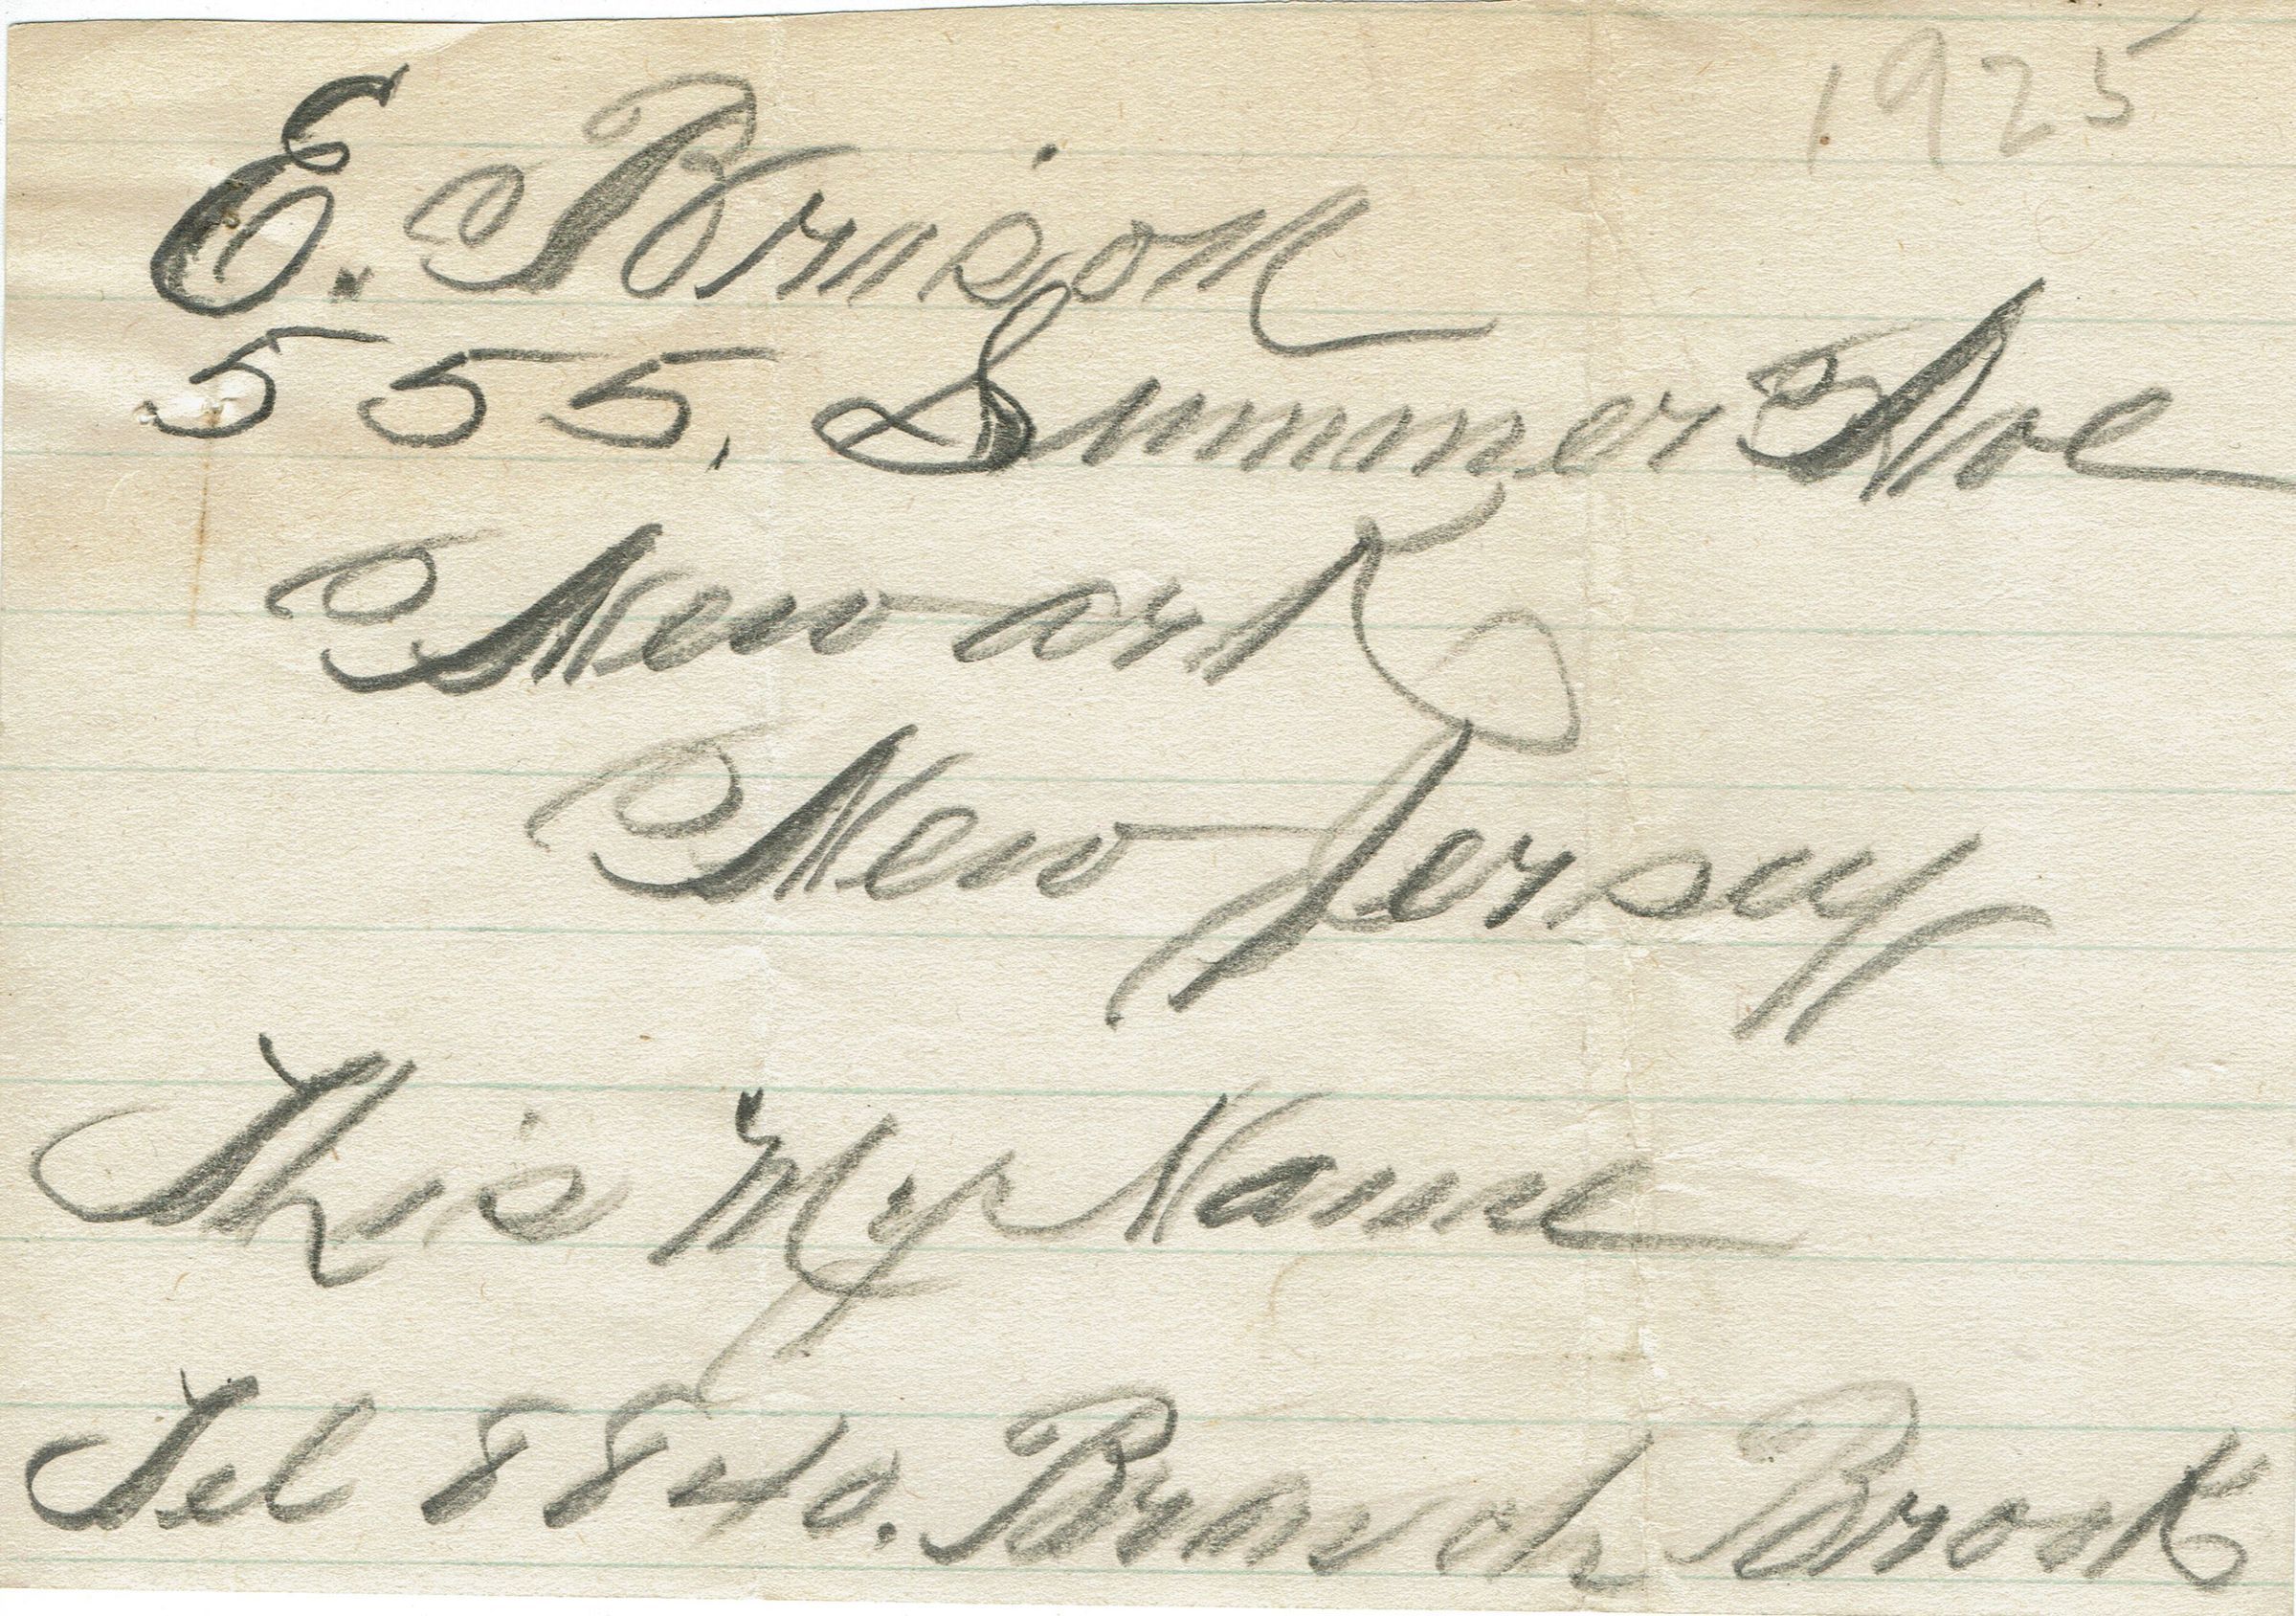 1925
E.
555, Summer Ave
Newark
New Jersey
This My Name
Tel 8840. Branch Brook